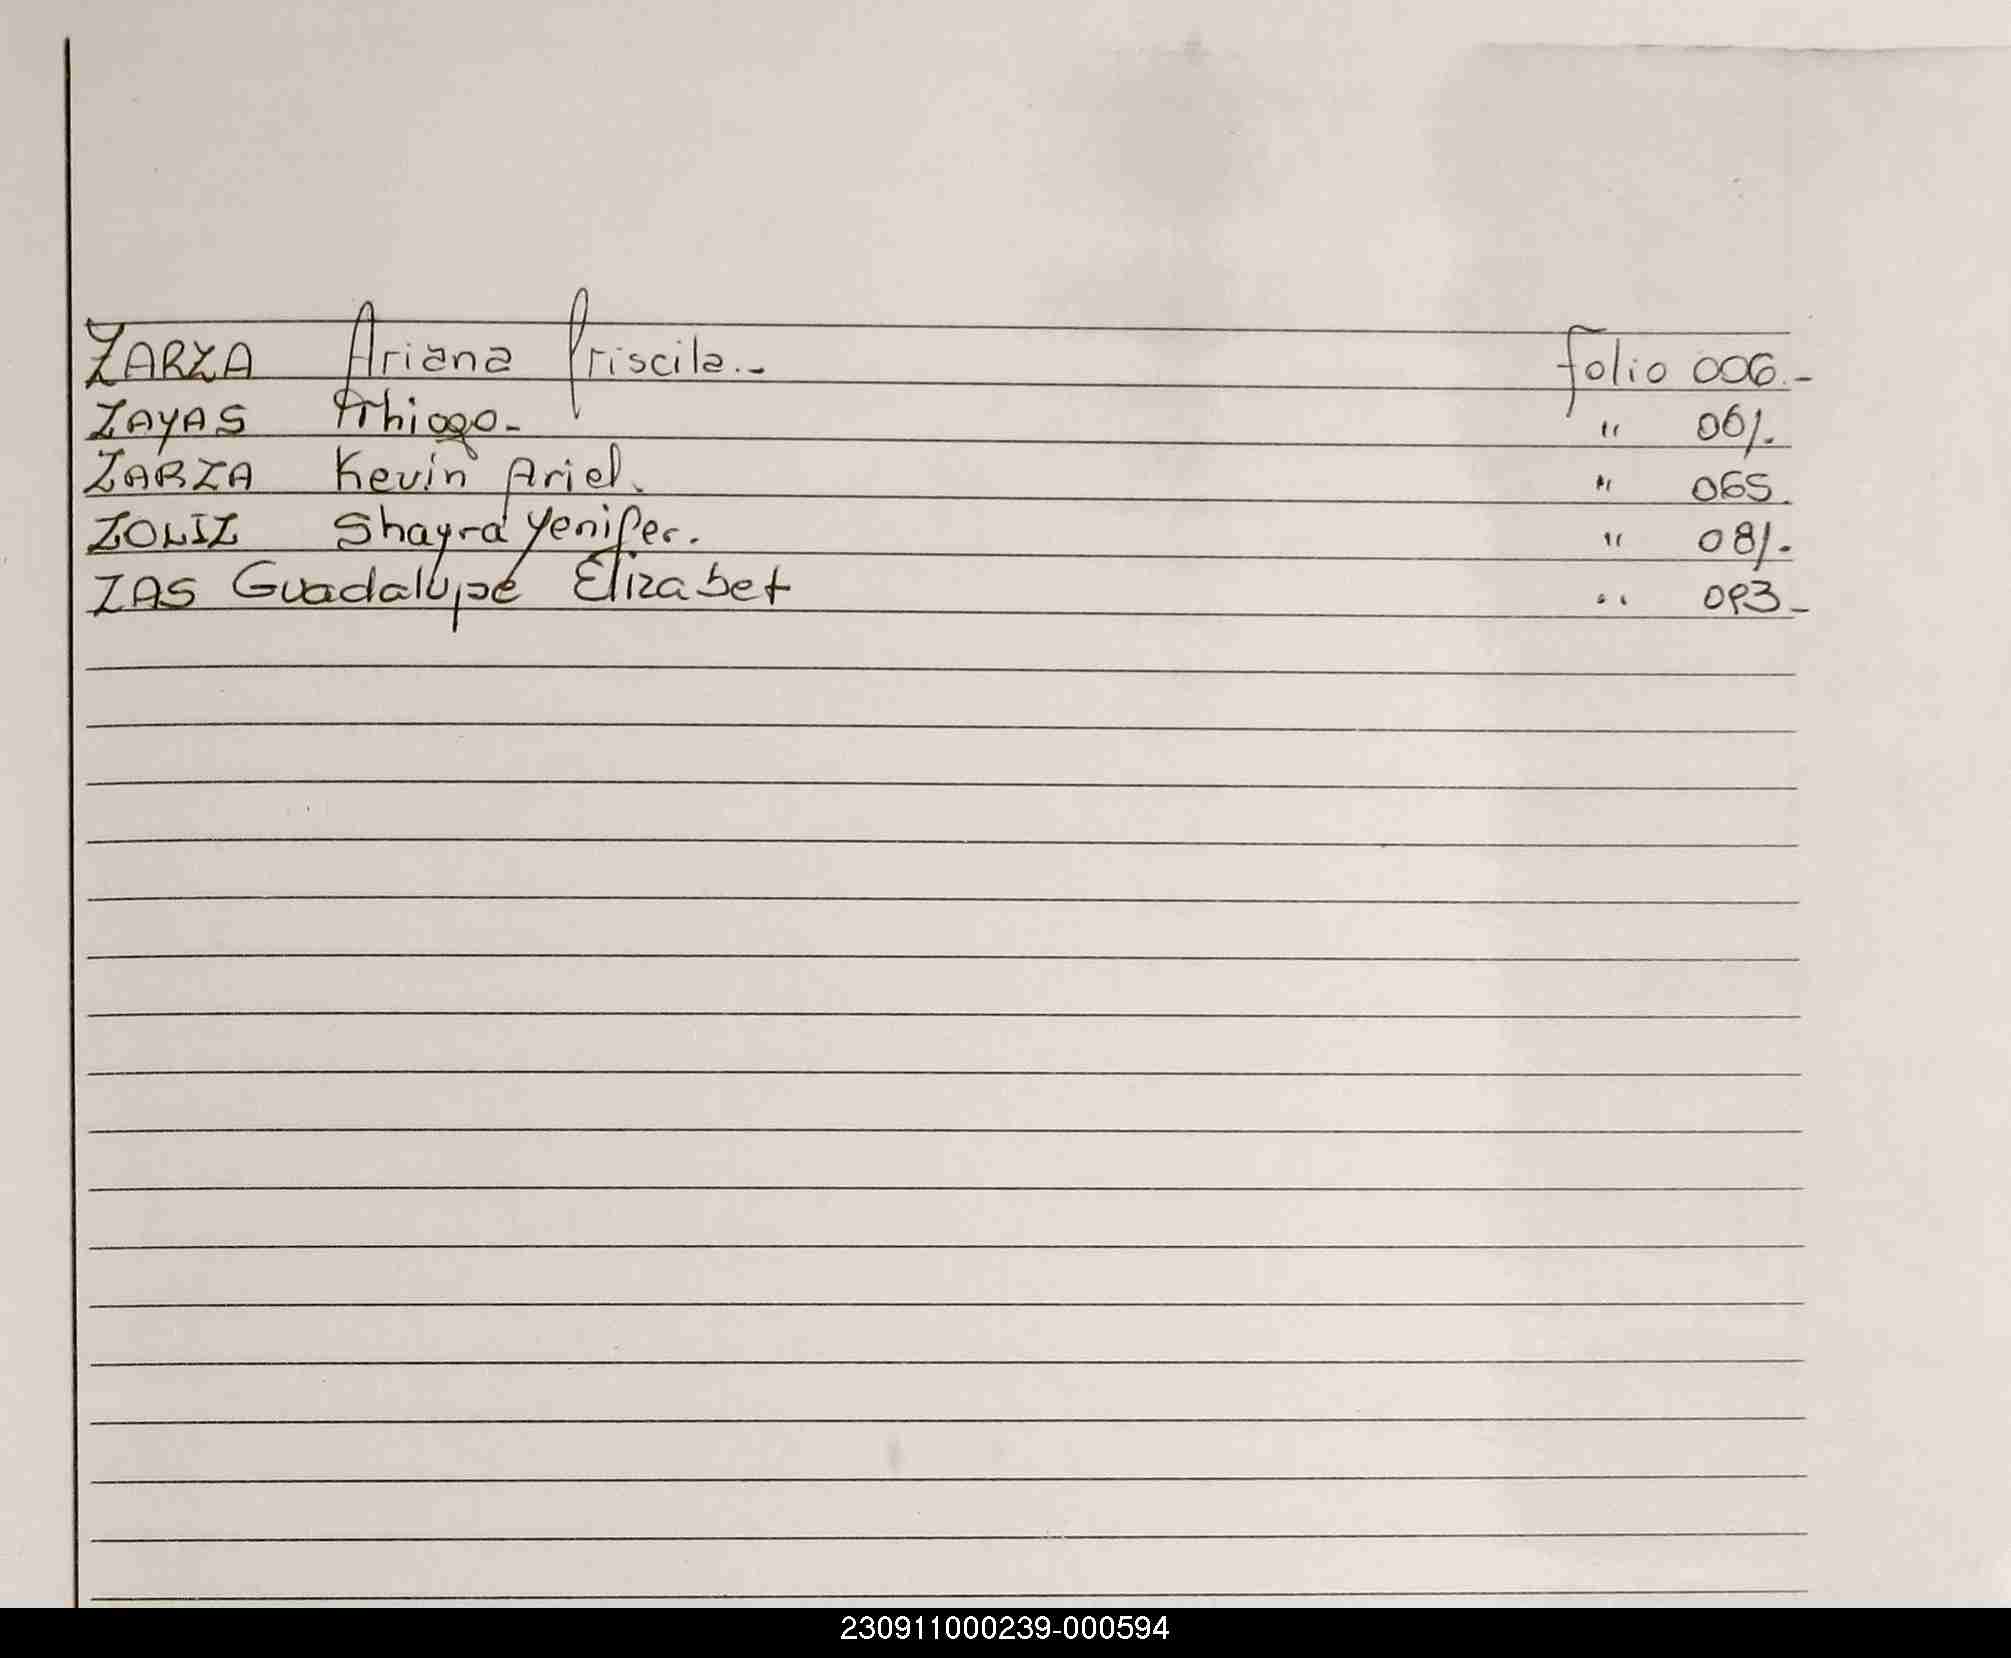 ZARZA Ariana Priscila.- folio 006.-
ZAYAS Thiago- " 061.
ZARZA Kevin Ariel. " 065.
ZOLIZ Shayra Yenifer. " 081.
ZAS Guadalupe Elizabet " 093-
230911000239-000594